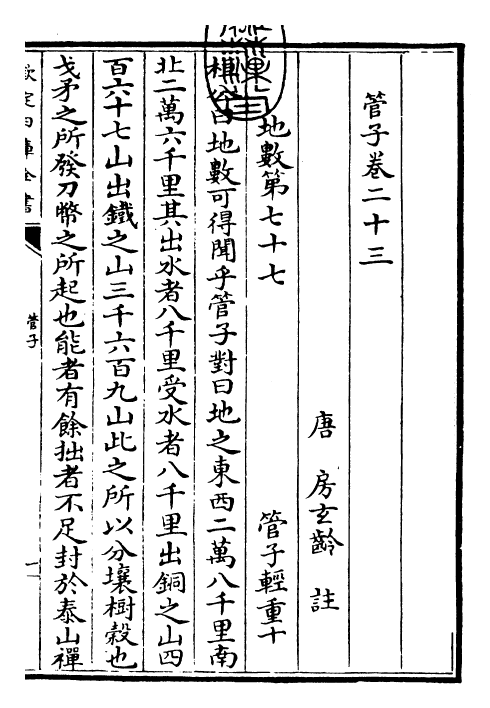 管子卷二十三
唐 房玄齡 註
地數第七十七 管子輕重十
桓公曰地數可得聞乎管子對曰地之東西二萬八千里南
北二萬六千里其出水者八千里受水者八千里出銅之山四
百六十七山出鐵之山三千六百九山此之所以分壤樹榖也
戈矛之所發刀幣之所起也能者有餘拙者不足封於泰山禪
欽定四庫全書
管子
一